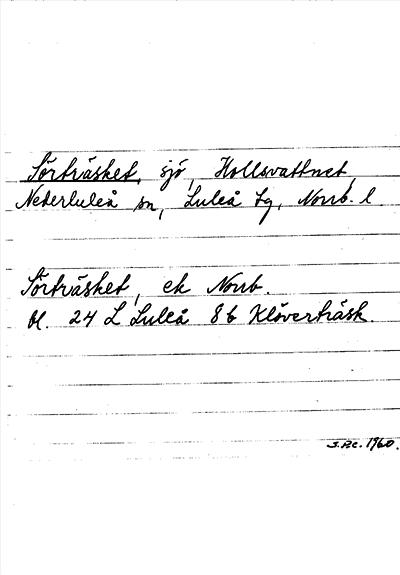 Sörträsket, sjö, Hollsvattnet,
Nederluleå sn, Luleå tg, Norrb. l.
Sörträsket, ek Norrb.
bl. 24 L Luleå 8b Klöverträsk.
1960.